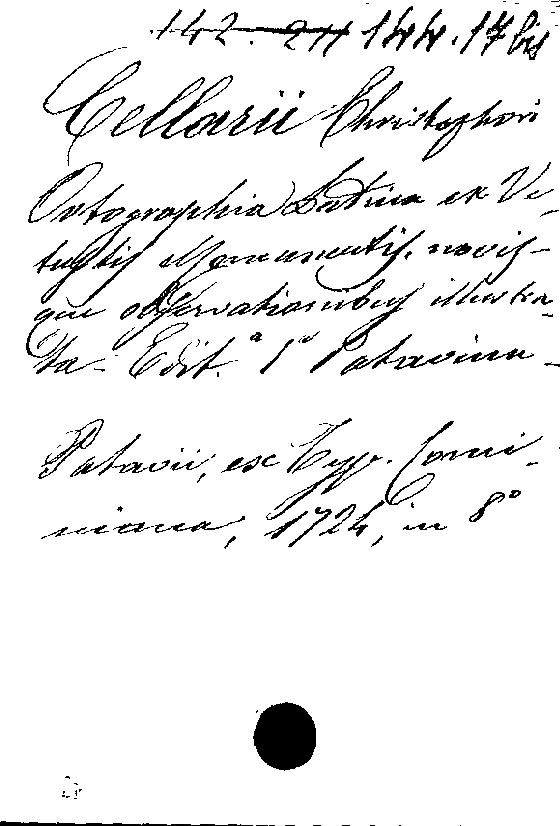 142. 211 144. 17 bis
Cellarii Christophori
Ortographia Latina ex Ve-
tustis Monumentis, novis-
que observationibus illustra-
ta - Edit.ª 1ª Patavina -
Patavii, ex Typ. Comi-
niana, 1724, in 8º